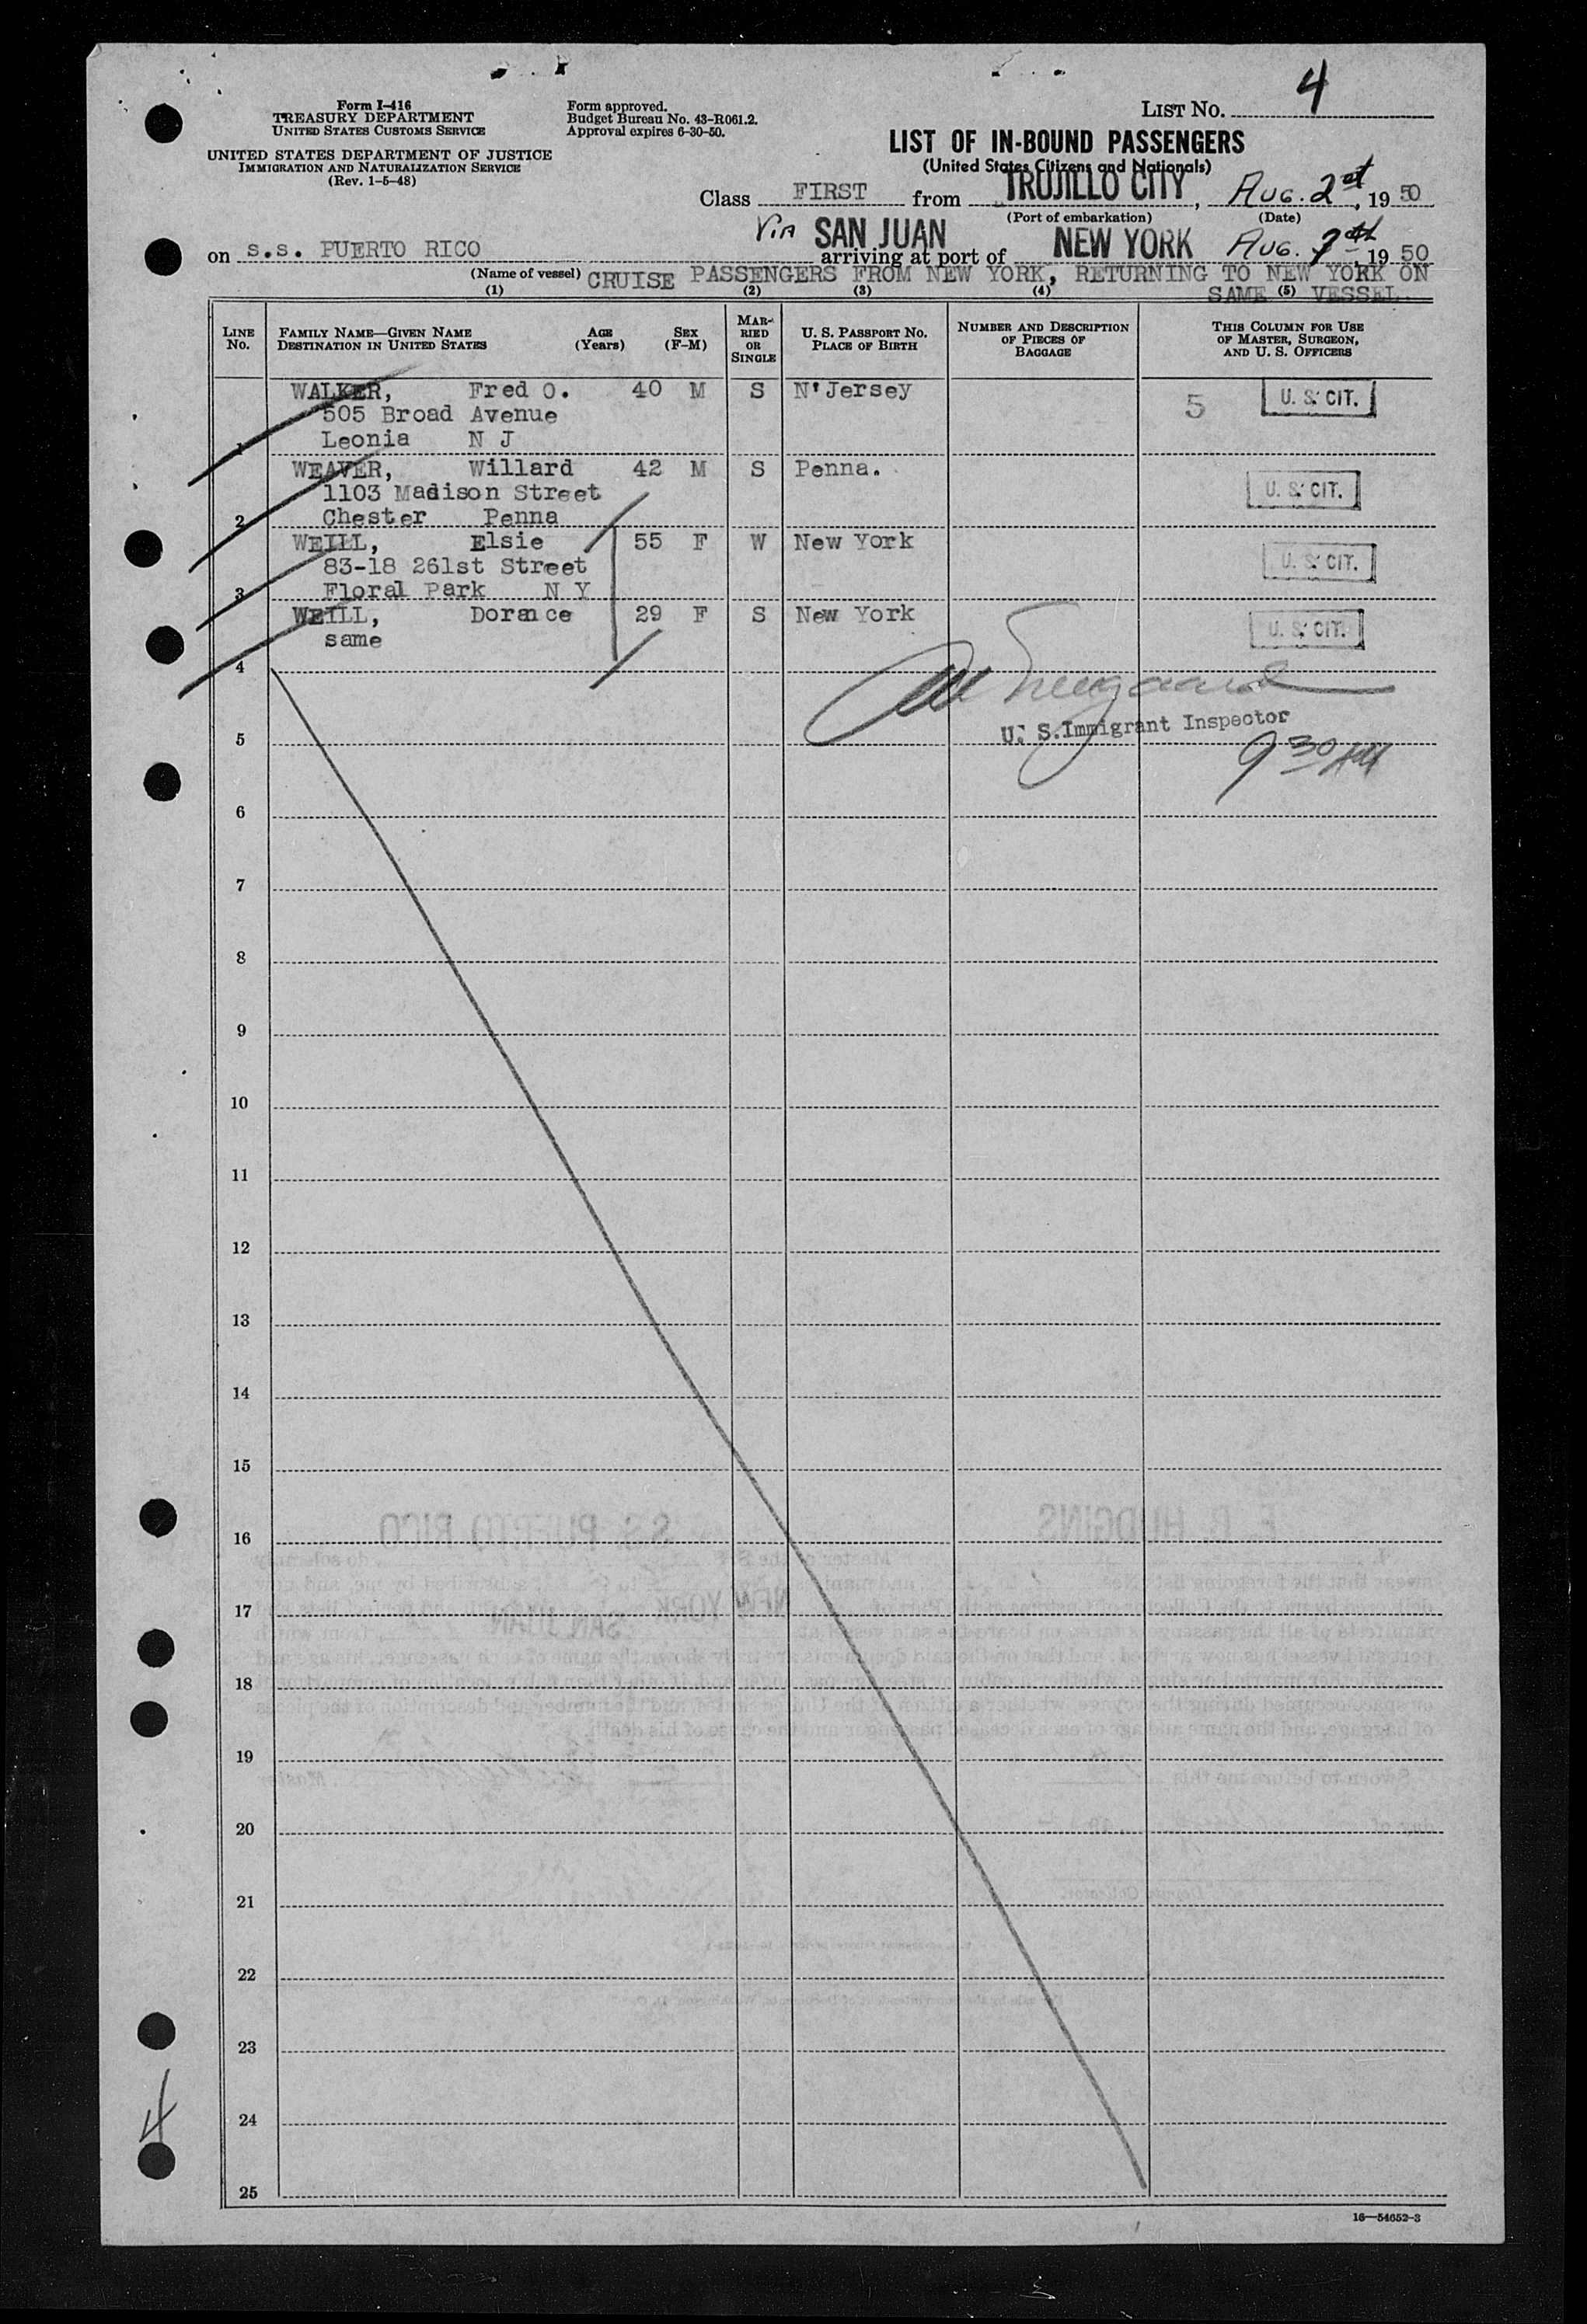 4
Form I-416
TREASURY DEPARTMENT
UNITED STATES CUSTOMS SERVICE
UNITED STATES DEPARTMENT OF JUSTICE
IMMIGRATION AND NATURALIZATION SERVICE
(Rev. 1-5-48)
Form approved.
Budget Bureau No. 43-R061.2.
Approval expires 6-30-50.
LIST No.
LIST OF IN-BOUND PASSENGERS
(United States Citizens and Nationals)
Class FIRST from TRUJILLO CITY, AUG. 2, 19 50
(Port of embarkation) (Date)
on s.s. PUERTO RICO Via SAN JUAN arriving at port of NEW YORK AUG. 7th, 19 50
(Name of vessel) CRUISE PASSENGERS FROM NEW YORK, RETURNING TO NEW YORK ON
SAME VESSEL.
(1) (2) (3) (4) (5)
LINE No. FAMILY NAME—GIVEN NAME DESTINATION IN UNITED STATES AGE (Years) SEX (F-M) MARRIED OR SINGLE U. S. PASSPORT No. PLACE OF BIRTH NUMBER AND DESCRIPTION OF PIECES OF BAGGAGE THIS COLUMN FOR USE OF MASTER, SURGEON, AND U. S. OFFICERS
WALKER, Fred O. 40 M S N'Jersey 5 U. S. CIT.
505 Broad Avenue
1 Leonia N J
WEAVER, Willard 42 M S Penna. U. S. CIT.
1103 Madison Street
2 Chester Penna
WEILL, Elsie 55 F W New York U. S. CIT.
83-18 261st Street
3 Floral Park N Y
WEILL, Dorance 29 F S New York U. S. CIT.
same
4
U. S. Immigrant Inspector
5
9 30 AM
6
7
8
9
10
11
12
13
14
15
16
17
18
19
20
21
22
23
24
4
25
16—54652-3